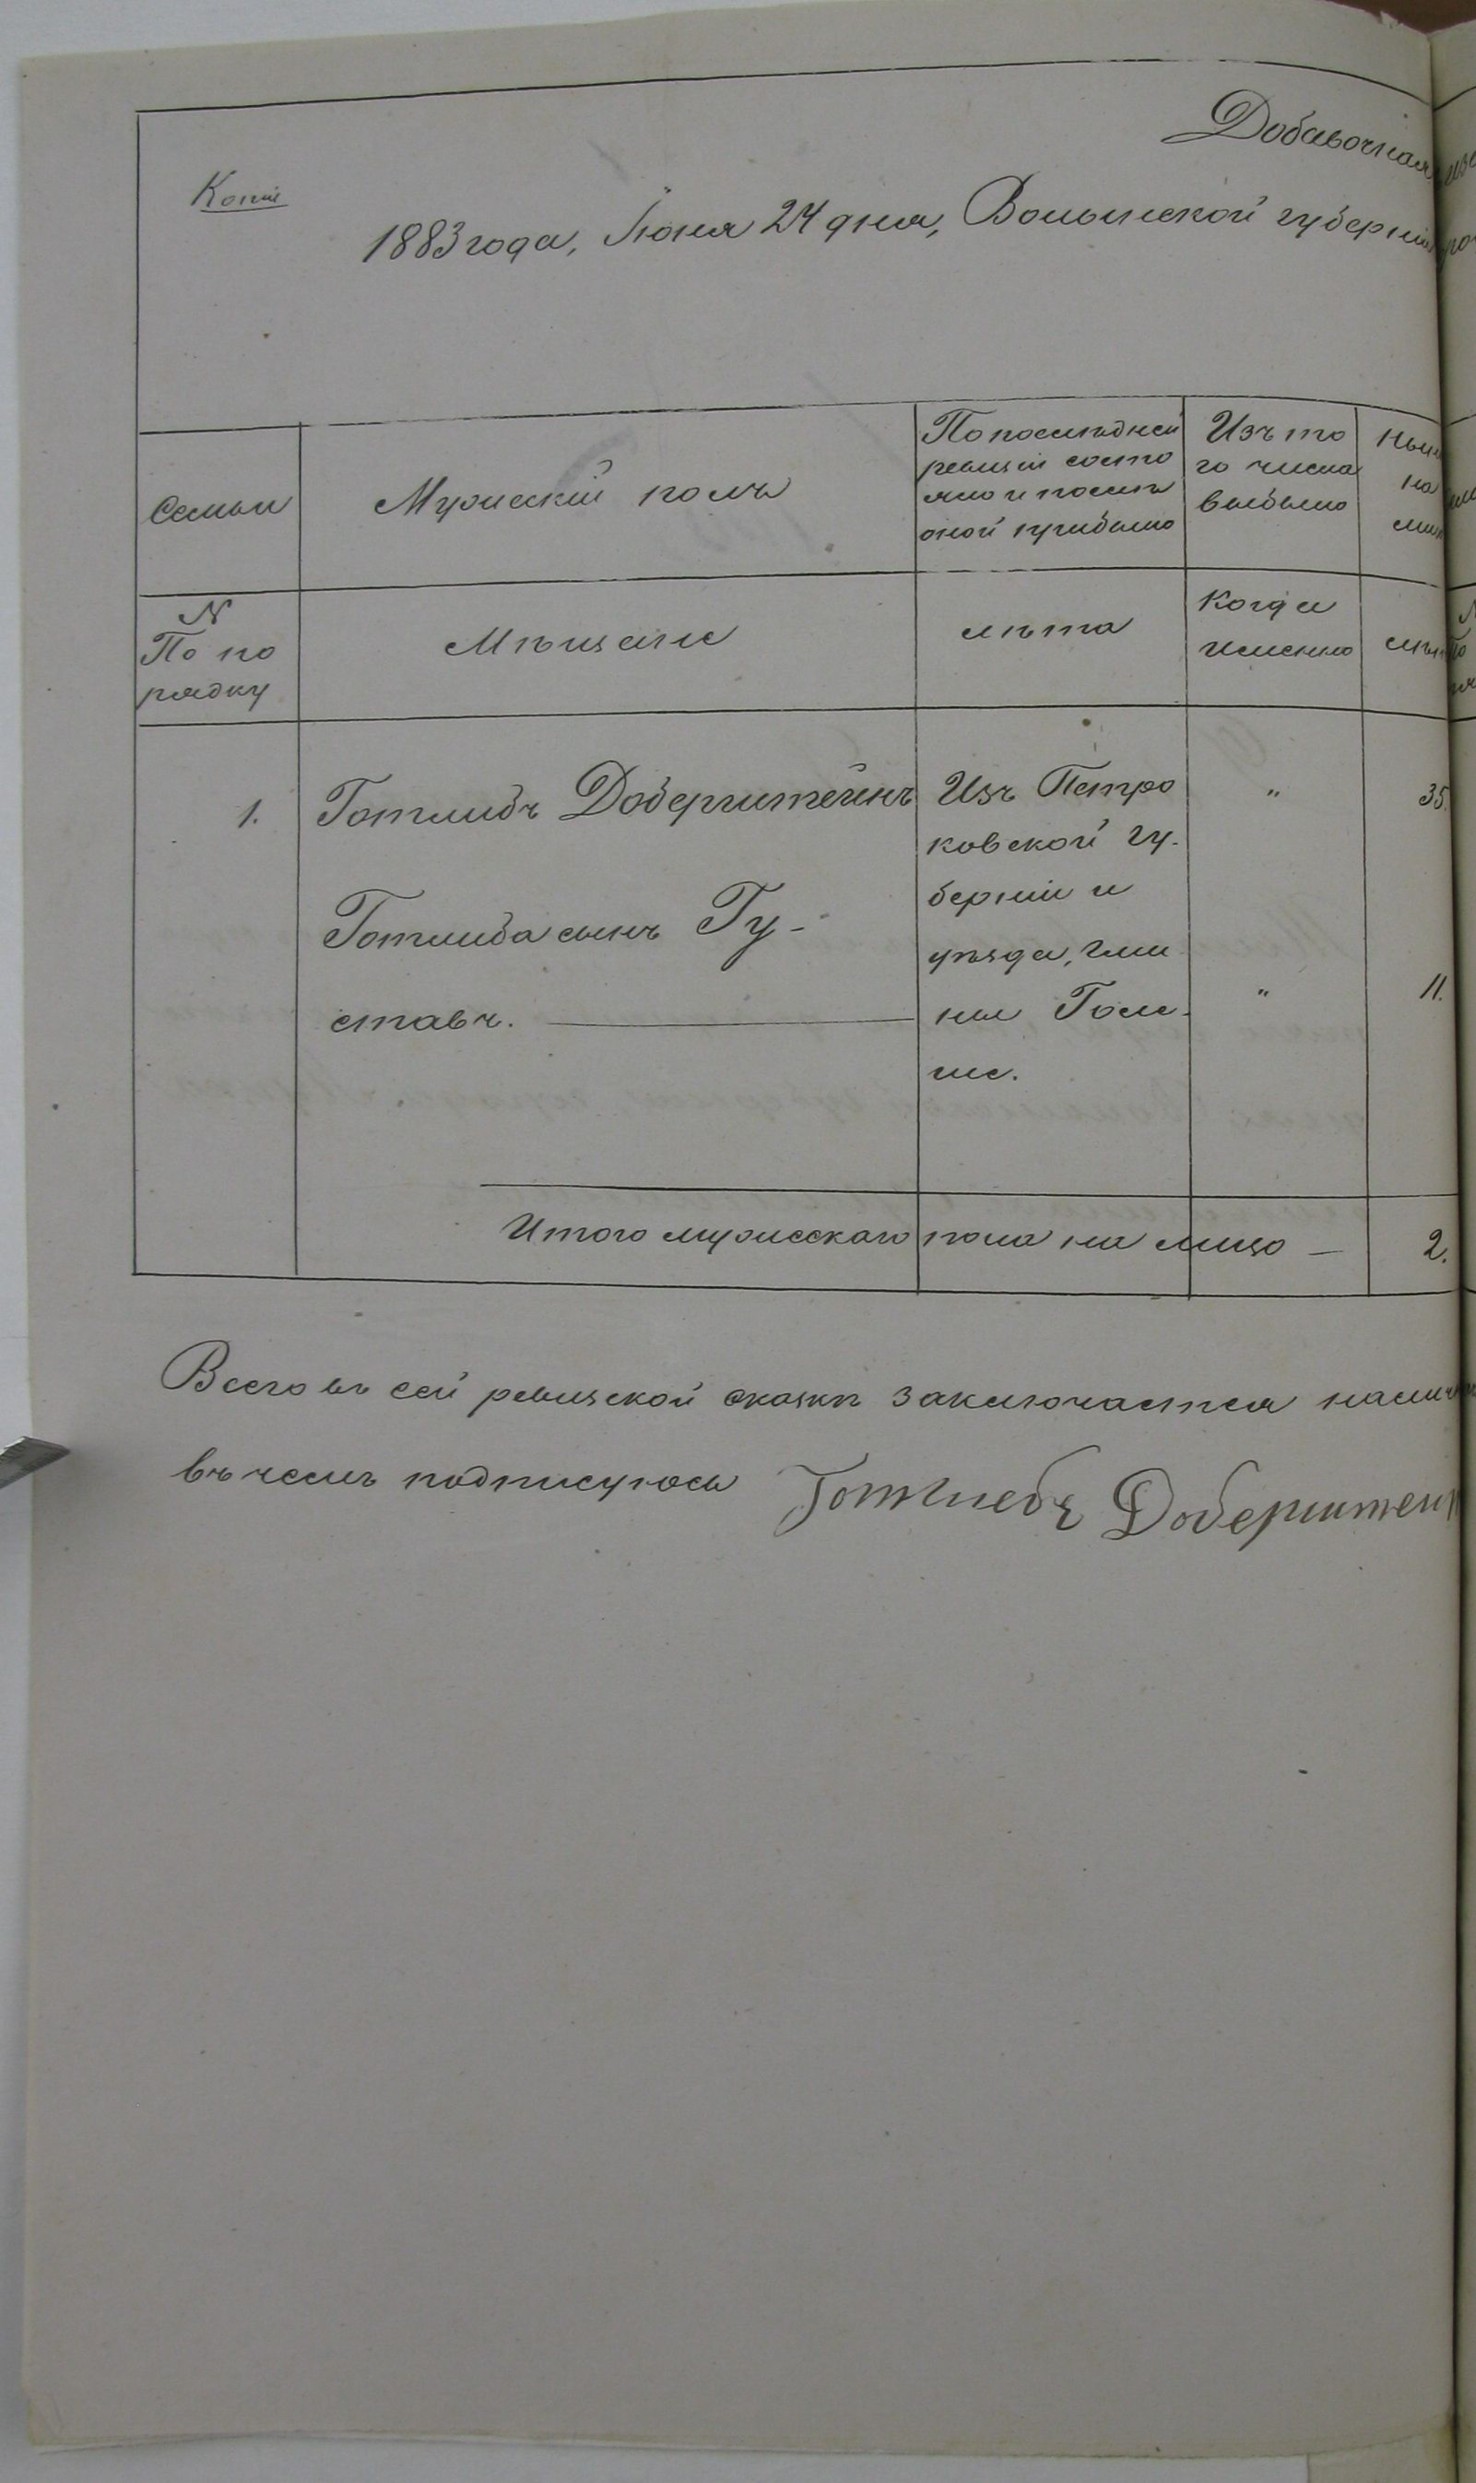 Добавочная
Копія
1883 года, Іюня 24 дня, Волынской губерніи
Семьи
Мужескій полъ
По последней
ревизіи состо
яло и послѣ
оной прибыло
Изъ то
го числа
выбыло
Нын
на
лиц
N
По по
рядку
Мѣщане
лѣта
Когда
именно
лѣт
1. Готлибъ Доберштейнъ Изъ Петро " 35.
ковской гу-
берніи и
Готлиба сынъ Гу-
уѣзда, гми
ставъ. ны Гоме- " 11.
ше.
Итого мужескаго пола на лицо — 2.
Всего въ сей ревизской сказкѣ заключается налич
въ чемъ подписуюсь Готлиебъ Доберштеин